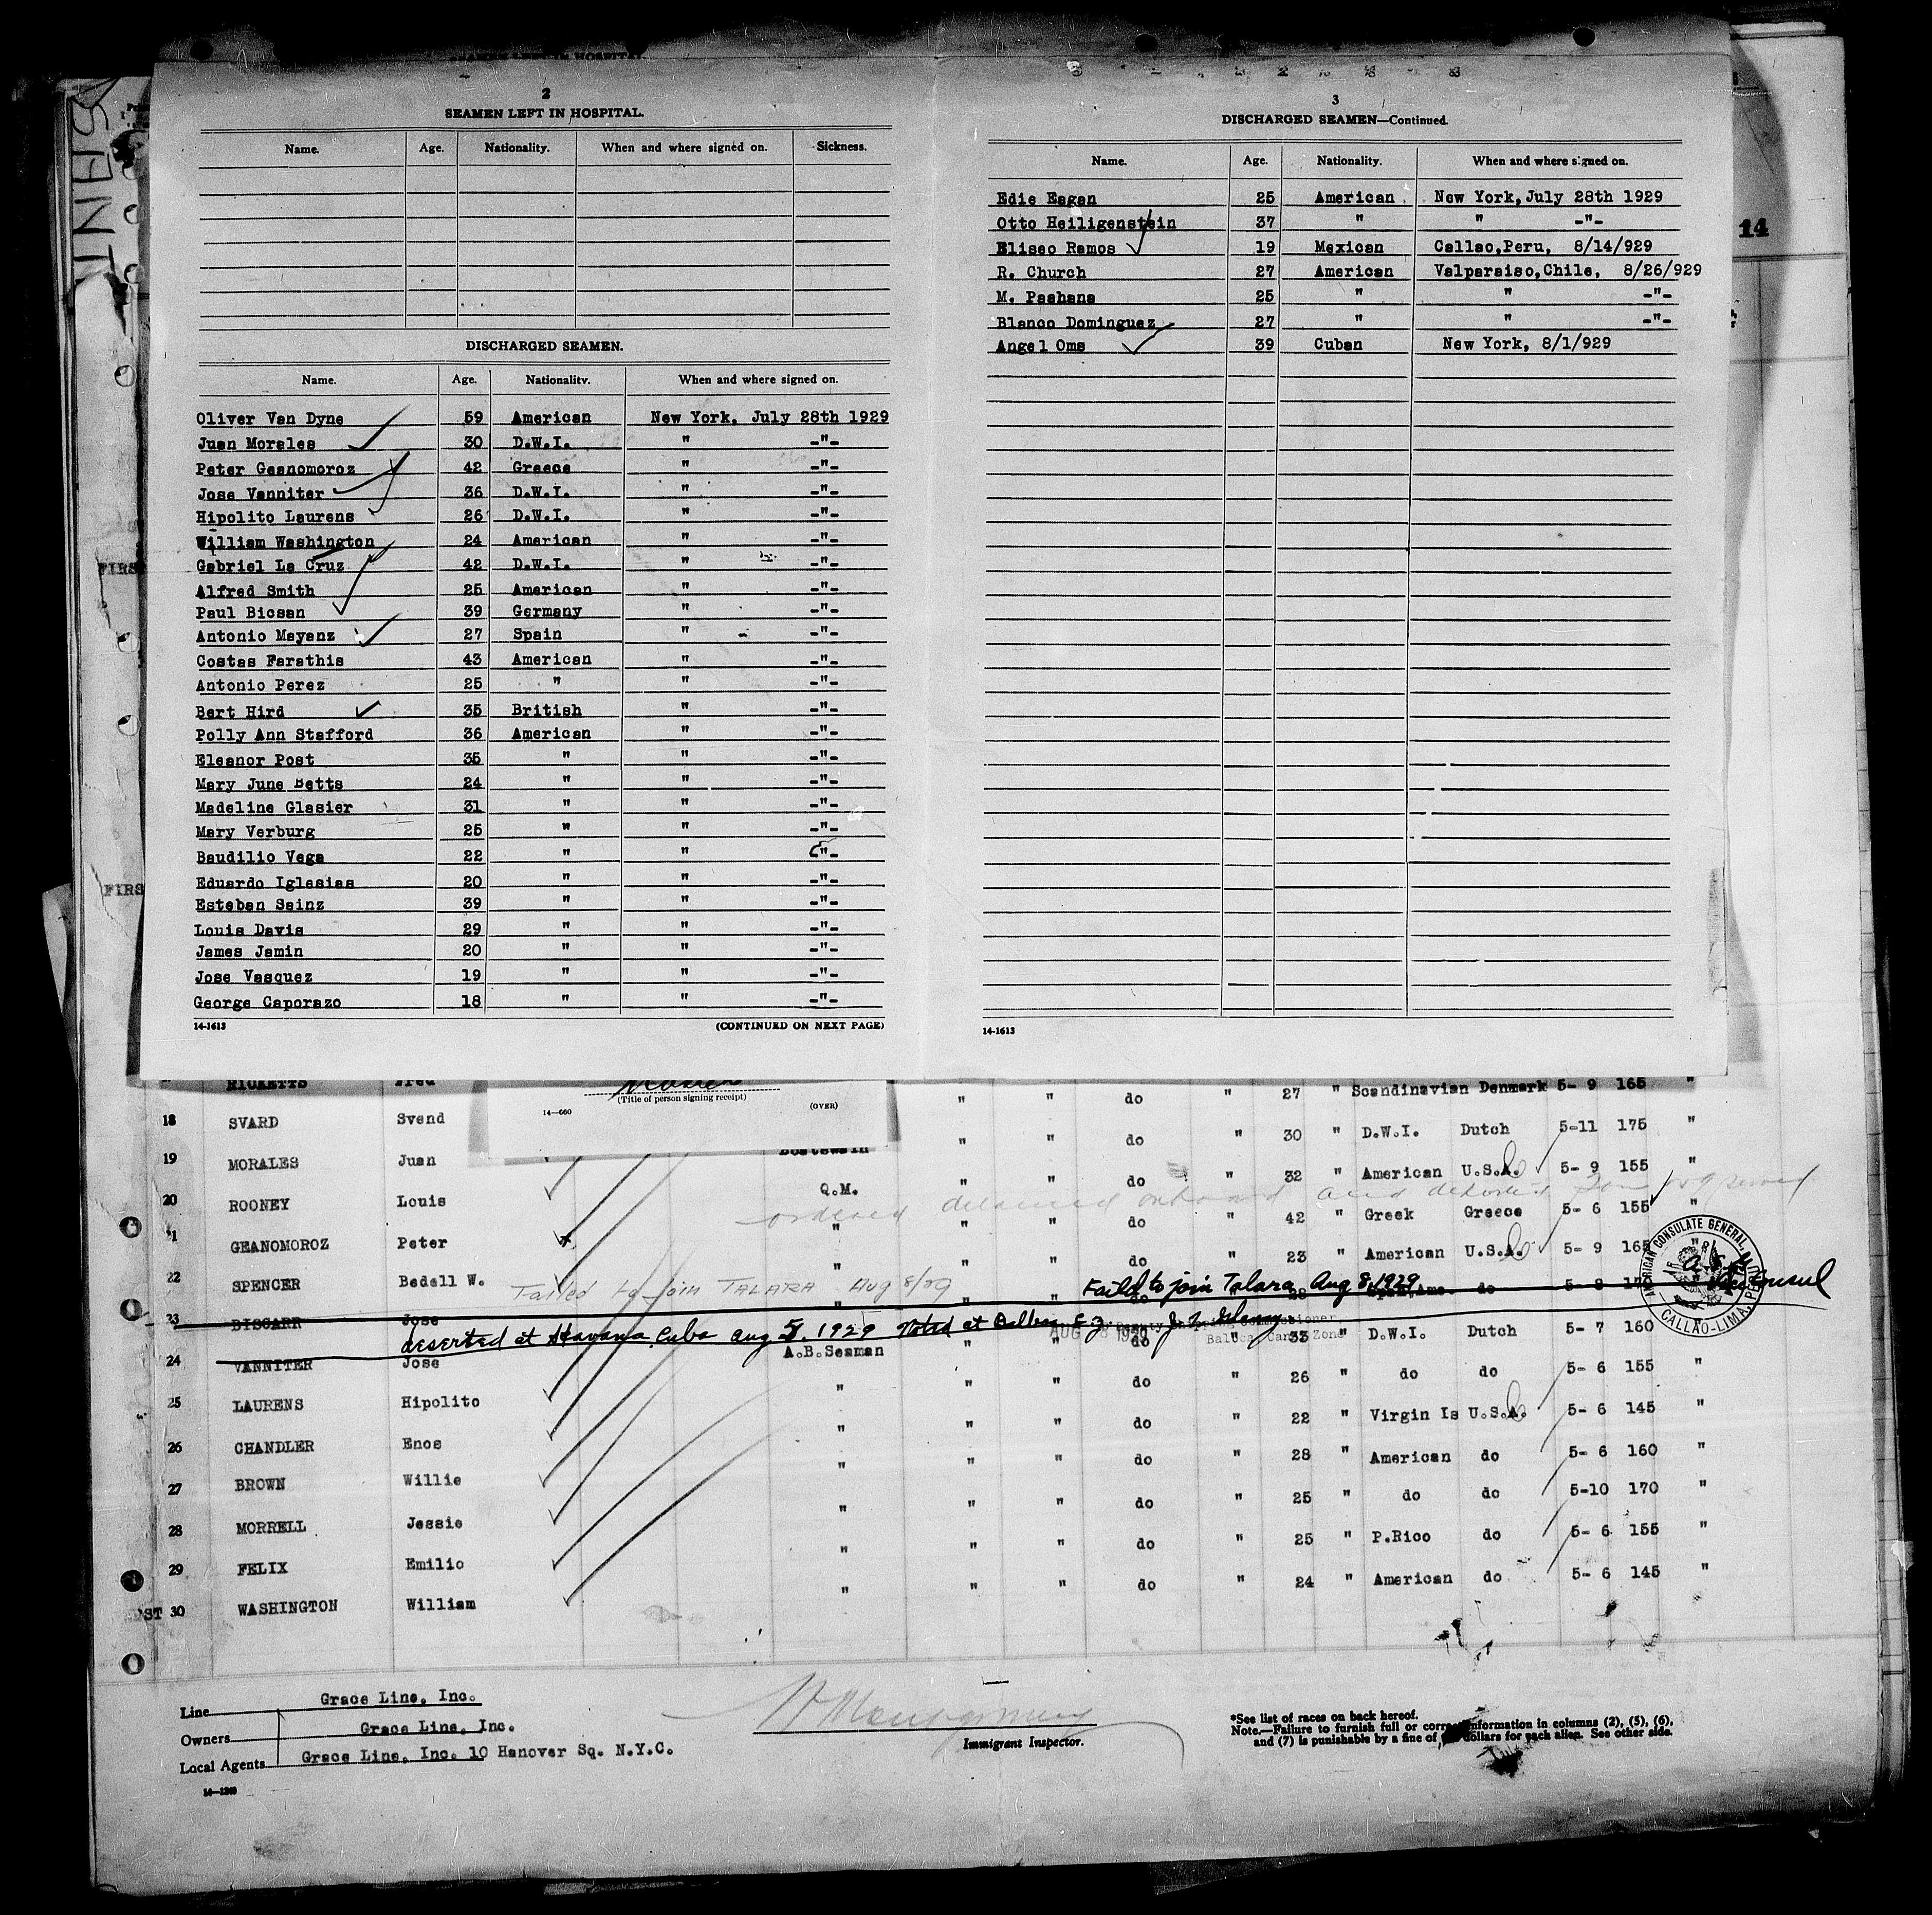 2
SEAMEN LEFT IN HOSPITAL.
Name. Age. Nationality. When and where signed on. Sickness.
DISCHARGED SEAMEN.
Name. Age. Nationality. When and where signed on.
Oliver Van Dyne 59 American New York, July 28th 1929
Juan Morales 30 D.W.I. " -"-
Peter Geanomoroz 42 Greece " -"-
Jose Vanniter 36 D.W.I. " -"-
Hipolito Laurens 26 D.W.I. " -"-
William Washington 24 American " -"-
Gabriel La Cruz 42 D.W.I. " -"-
Alfred Smith 25 American " -"-
Paul Bicsan 39 Germany " -"-
Antonio Mayanz 27 Spain " -"-
Costas Farathis 43 American " -"-
Antonio Perez 25 " " -"-
Bert Hird 35 British " -"-
Polly Ann Stafford 36 American " -"-
Eleanor Post 35 " " -"-
Mary June Betts 24 " " -"-
Madeline Glasier 31 " " -"-
Mary Verburg 25 " " -"-
Baudilio Vega 22 " " -"-
Eduardo Iglesias 20 " " -"-
Esteban Sainz 39 " " -"-
Louis Davis 29 " " -"-
James Jamin 20 " " -"-
Jose Vasquez 19 " " -"-
George Caporazo 18 " " -"-
14-1613 (CONTINUED ON NEXT PAGE)
3
DISCHARGED SEAMEN—Continued.
Name. Age. Nationality. When and where signed on.
Edie Eagan 25 American New York, July 28th 1929
Otto Heiligenstein 37 " " -"-
Eliseo Ramos 19 Mexican Callao, Peru, 8/14/929
R. Church 27 American Valparaiso, Chile, 8/26/929
M. Pashana 25 " " -"-
Blanco Dominguez 27 " " -"-
Angel Oms 39 Cuban New York, 8/1/929
14-1613
14
FIRS
FIRS
(Title of person signing receipt)
14—660 (OVER)
RICKETTS Fred
18 SVARD Svend " " do " 27 " Scandinavian Denmark 5- 9 165 "
19 MORALES Juan Boatswain " " do " 30 " D.W.I. Dutch 5-11 175 "
20 ROONEY Louis Q.M. " " do " 32 " American U.S.A. 5- 9 155 "
ordered detained onboard and deported
21 GEANOMOROZ Peter " " " do " 42 " Greek Greece 5- 6 155 "
22 SPENCER Bedell W. " " " do " 23 " American U.S.A. 5- 9 165 "
Failed to join TALARA Aug 8/29 Faild to join Talara, Aug 8, 1929 Vice Consul
AMERICAN CONSULATE GENERAL, CALLAO-LIMA, PERU
23 BISCARR Jose " " " do " 28 " Span.Ame. do 5- 8
deserted at Havana, Cuba Aug 5, 1929 Noted at Balboa C.Z.
Deputy Shipping Commissioner
Balboa, Canal Zone
24 VANNITER Jose A.B.Seaman " " do " 33 " D.W.I. Dutch 5- 7 160 "
25 LAURENS Hipolito " " " do " 26 " do do 5- 6 155 "
26 CHANDLER Enos " " " do " 22 " Virgin Is U.S.A. 5- 6 145 "
27 BROWN Willie " " " do " 28 " American do 5- 6 160 "
28 MORRELL Jessie " " " do " 25 " do do 5-10 170 "
29 FELIX Emilio " " " do " 25 " P.Rico do 5- 6 155 "
30 WASHINGTON William " " " do " 24 " American do 5- 6 145 "
Line Grace Line, Inc.
Owners Grace Line, Inc.
Local Agents Grace Line, Inc. 10 Hanover Sq. N.Y.C.
Immigrant Inspector.
*See list of races on back hereof.
Note.—Failure to furnish full or correct information in columns (2), (5), (6),
and (7) is punishable by a fine of dollars for each alien. See other side.